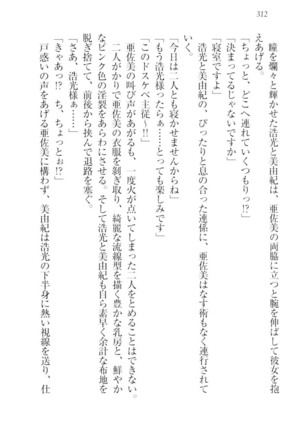 312
瞳を爛々と輝かせた浩光と美由紀は、亜佐美の両脇に立つと腕を伸ばして彼女を抱
えあげる。
「ちょっと、どこへ連れていくつもりっ!?」
「決まってるじゃないですか」
「寝室ですよ」
浩光と美由紀の、ぴったりと息の合った連係に、亜佐美はなす術もなく連行されて
いく。
「今日は二人とも寝かせませんからね」
「もう浩光様ったらぁ……とっても楽しみです」
「このドスケベ主従~!!」
亜佐美の叫び声があがるも、一度火が点いてしまった二人をとめることはできない。
二人がかりで亜佐美の衣服を剥ぎ取り、綺麗な流線型を描く豊かな乳房と、鮮やか
なピンク色の淫裂をあらわにさせる。そして浩光と美由紀も自ら素早く余計な布地を
脱ぎ捨てて、前後から挟んで退路を塞ぐ。
「さあ、浩光様ぁ……」
「きゃあっ!? ち、ちょっとぉ!?」
戸惑いの声をあげる亜佐美に構わず、美由紀は浩光の下半身に熱い視線を送り、仕